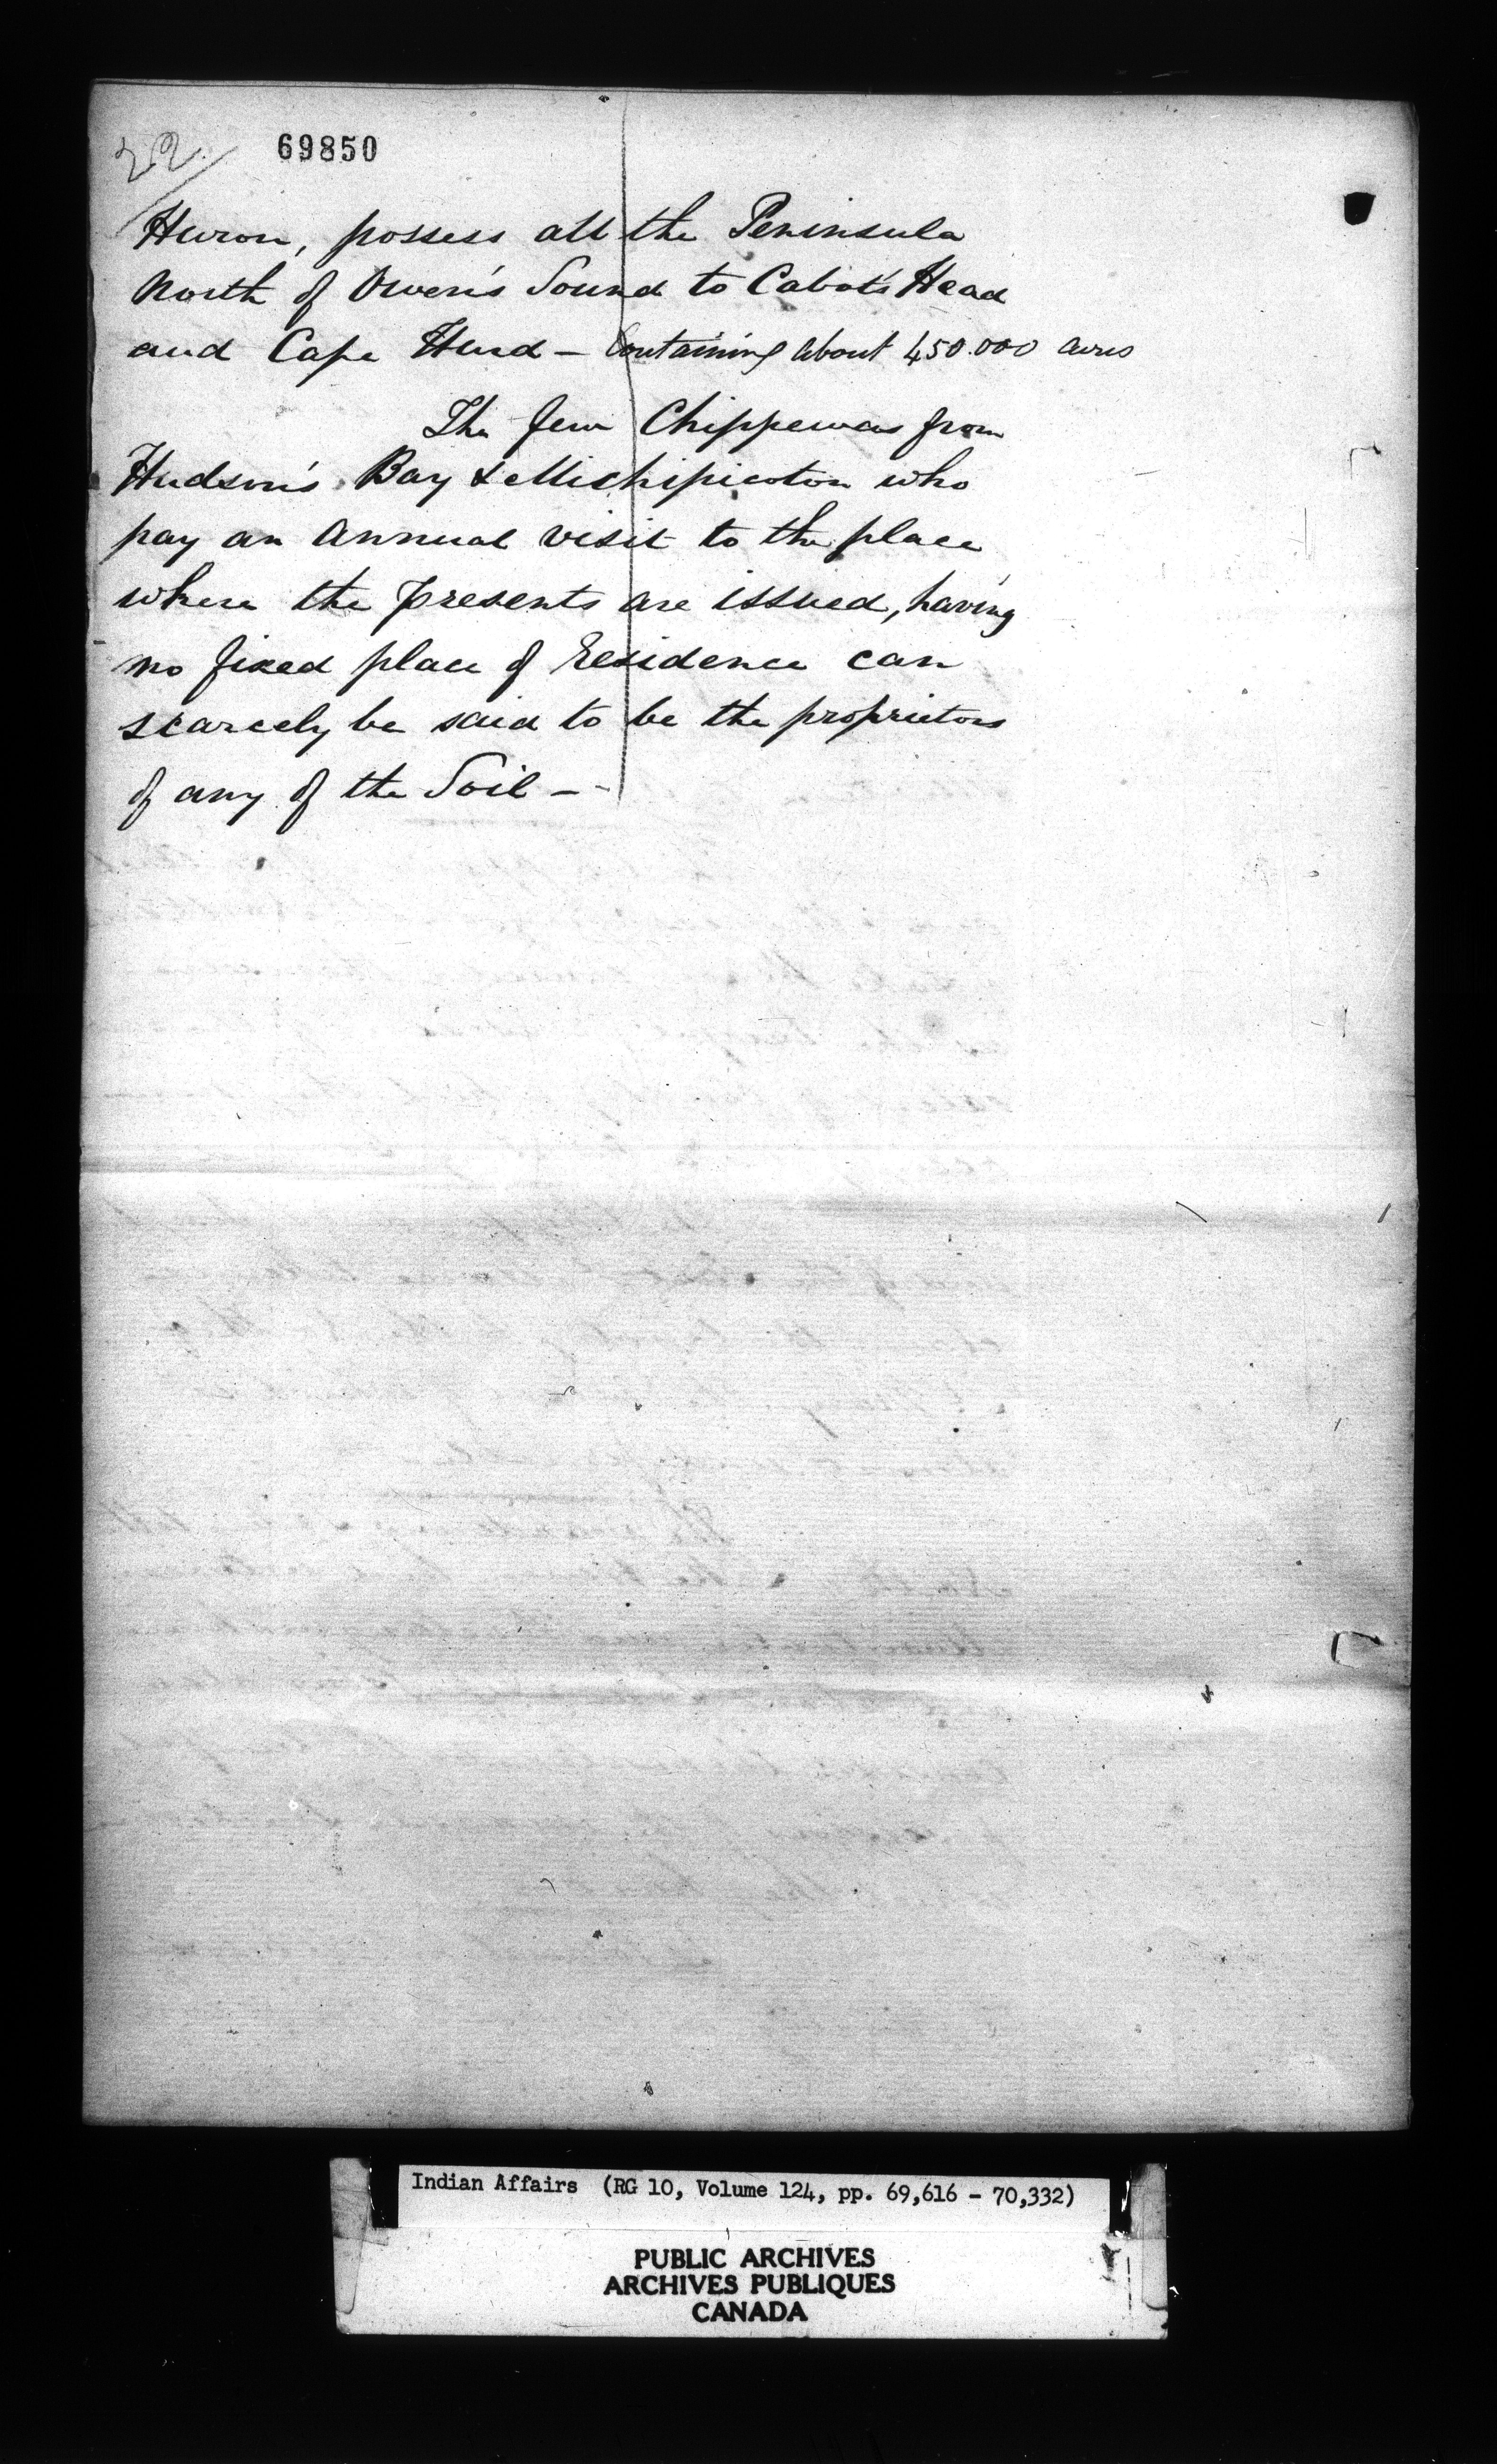 22
69850
Huron, possess all the Peninsula
North of Owen's Sound to Cabot's Head
and Cape Hurd - Containing about 450.000 acres
The few Chippewas from
Hudson's Bay & Michipicoton who
pay an Annual visit to the place
where the presents are issued, having
no fixed place of Residence can
scarcely be said to be the proprietors
of any of the Soil -
Indian Affairs (RG 10, Volume 124, pp. 69,616 - 70,332)
PUBLIC ARCHIVES
ARCHIVES PUBLIQUES
CANADA